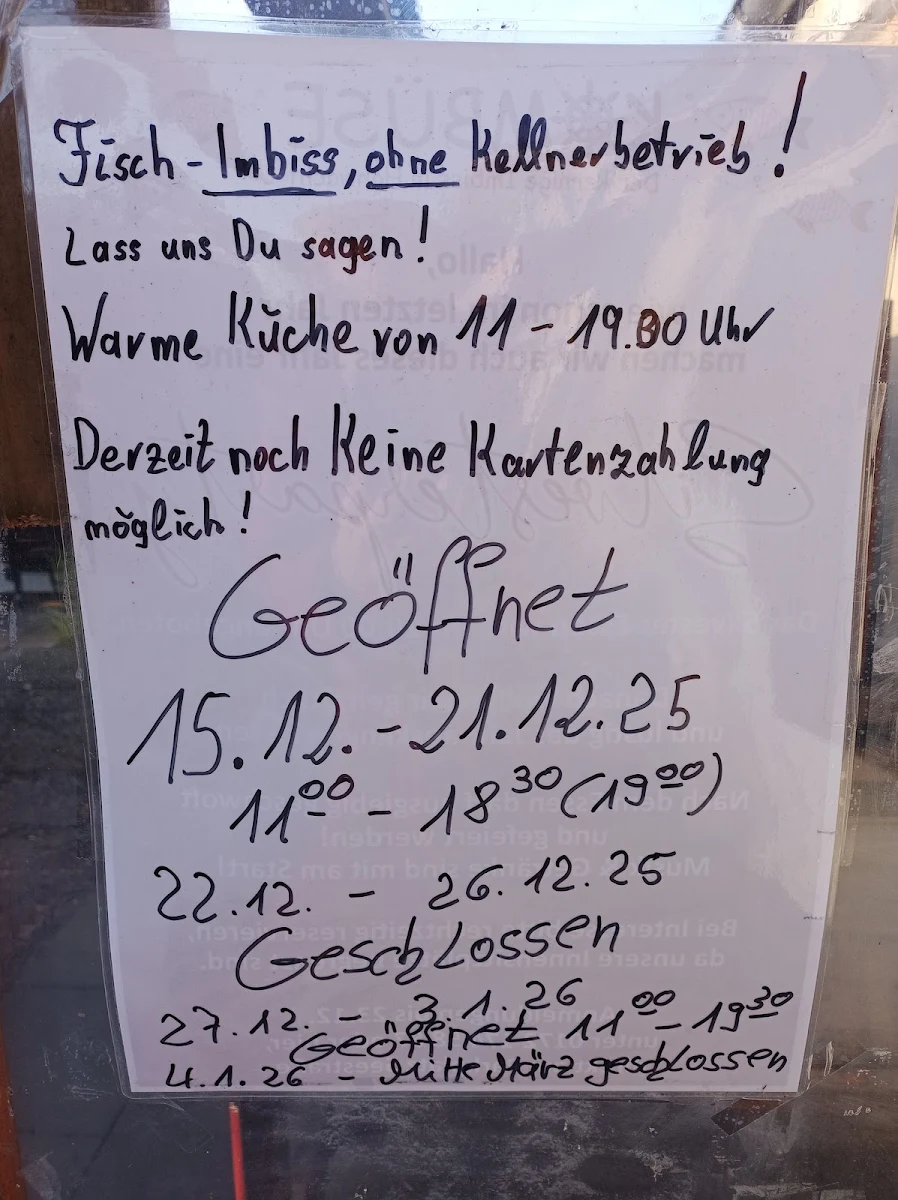 Fisch-Imbiss, ohne Kellnerbetrieb!
Lass uns Du sagen!
Warme Küche von 11 - 19.00 Uhr
Derzeit noch Keine Kartenzahlung
möglich!
Geöffnet
15.12. - 21.12.25
11⁰⁰ - 18³⁰ (19⁰⁰)
22.12. - 26.12.25
Geschlossen
27.12. - 3.1.26 11⁰⁰ - 19³⁰
Geöffnet
4.1.26 - Mitte März geschlossen